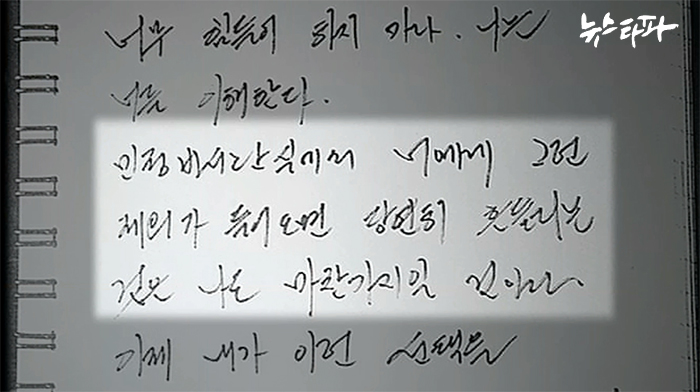 뉴스타파
너무 힘들어 하지 마라. 나는
너를 이해한다.
민정비서관실에서 너에게 그런
제의가 들어오면 당연히 흔들리는
것은 나도 마찬가지일 것이다.
이제 내가 이런 선택을